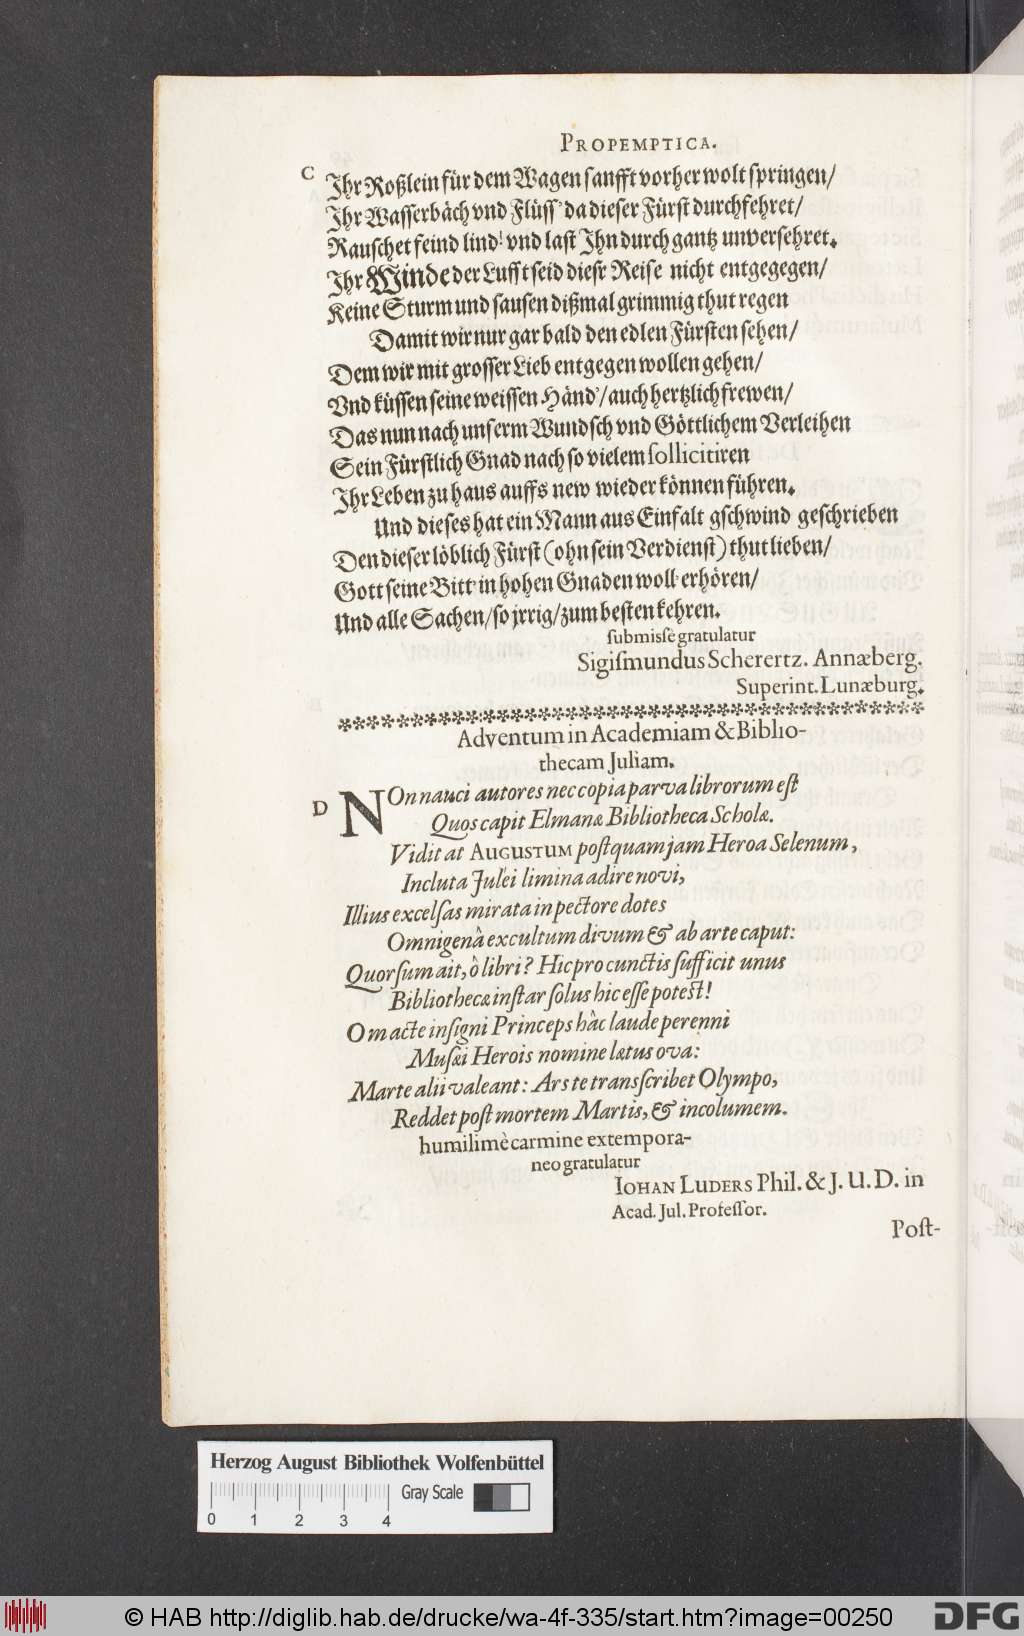 PROPEMPTICA.
C
Jhr Roßlein für dem Wagen sanfft vorher wolt springen/
Jhr Wasserbäch vnd Flüss' da dieser Fürst durchfehret/
Rauschet feind lind! vnd last Jhn durch gantz unversehret.
Jhr Winde der Lufft seid diesr Reise nicht entgegegen/
Keine Sturm und sausen dißmal grimmig thut regen
Damit wir nur gar bald den edlen Fürsten sehen/
Dem wir mit grosser Lieb entgegen wollen gehen/
Vnd küssen seine weissen Händ'/ auch hertzlich frewen/
Das nun nach unserm Wundsch vnd Göttlichem Verleihen
Sein Fürstlich Gnad nach so vielem ſollicitiren
Jhr Leben zu haus auffs new wieder können führen.
Und dieses hat ein Mann aus Einfalt gschwind geschrieben
Den dieser löblich Fürst (ohn sein Verdienst) thut lieben/
Gott seine Bitt' in hohen Gnaden woll erhören/
Und alle Sachen/ so jrrig/ zum besten kehren.
ſubmiſsè gratulatur
Sigiſmundus Scherertz. Annæberg.
Superint. Lunæburg.
Adventum in Academiam & Biblio-
thecam Juliam.
D
NOn nauci autores nec copia parva librorum eſt
Quos capit Elmanæ Bibliotheca Scholæ.
Vidit at AUGUSTUM poſtquam jam Heroa Selenum,
Incluta Julëi limina adire novi,
Illius excelſas mirata in pectore dotes
Omnigenâ excultum divum & ab arte caput:
Quorſum ait, ô libri? Hic pro cunctis ſufficit unus
Bibliothecæ inſtar ſolus hic eſſe potest!
O macte inſigni Princeps hâc laude perenni
Muſæi Herois nomine lætus ova:
Marte alii valeant: Ars te transſcribet Olympo,
Reddet poſt mortem Martis, & incolumem.
humilimè carmine extempora-
neo gratulatur
IOHAN LUDERS Phil. & J. U. D. in
Acad. Jul. Profeſſor.
Poſt-
Herzog August Bibliothek Wolfenbüttel
Gray Scale
0 1 2 3 4
© HAB http://diglib.hab.de/drucke/wa-4f-335/start.htm?image=00250
DFG